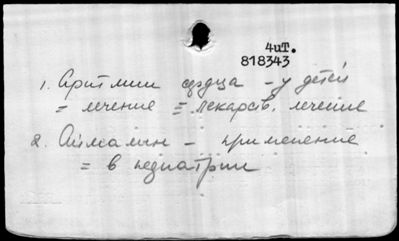 4иТ.
818343
1. Аритмии сердца – у детей
= лечение = лекарств. лечение
2. Аймалин – применение
= в педиатрии